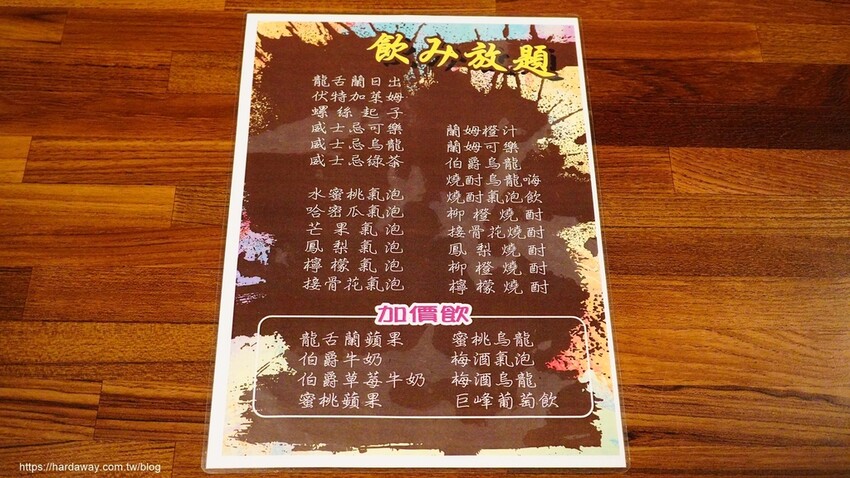 飲み放題
龍舌蘭日出
伏特加萊姆
螺絲起子
威士忌可樂
威士忌烏龍
威士忌綠茶
水蜜桃氣泡
哈密瓜氣泡
芒果氣泡
鳳梨氣泡
檸檬氣泡
接骨花氣泡
蘭姆橙汁
蘭姆可樂
伯爵烏龍
燒酎烏龍嗨
燒酎氣泡飲
柳橙燒酎
接骨花燒酎
鳳梨燒酎
柳橙燒酎
檸檬燒酎
加價飲
龍舌蘭蘋果
伯爵牛奶
伯爵草莓牛奶
蜜桃蘋果
蜜桃烏龍
梅酒氣泡
梅酒烏龍
巨峰葡萄飲
https://hardaway.com.tw/blog